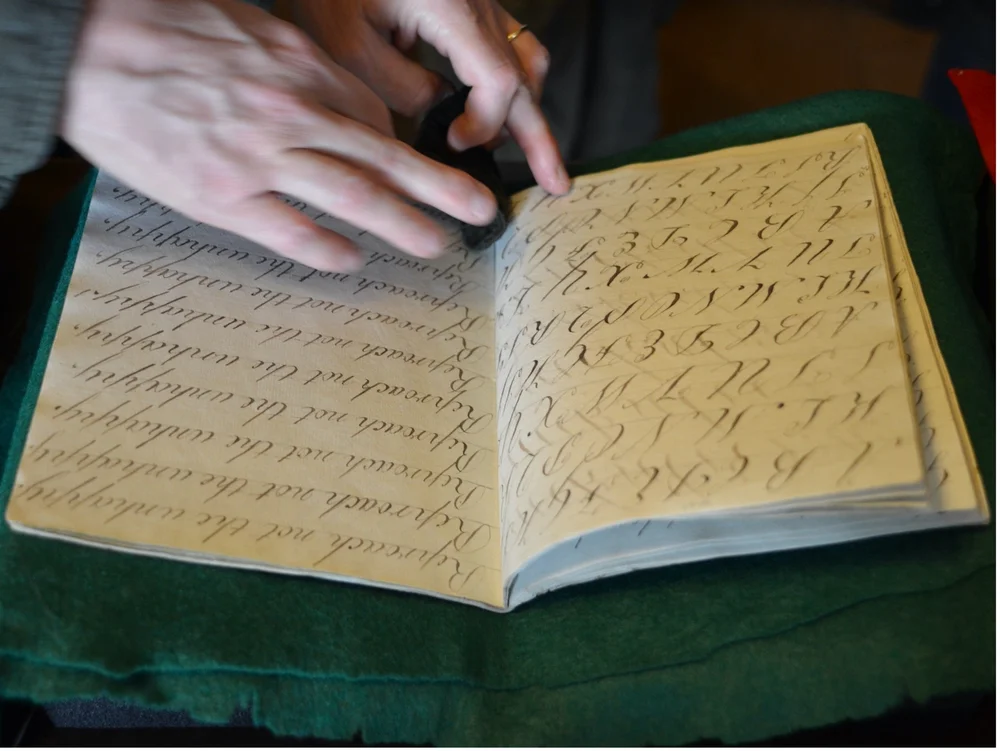 A B C D E F G H
K L M N O P Q
S T U V W X Y
A B C D E F G H
K L M N O P Q R S
T U V W X Y Z
A B C D E F G
I K L M N O P
R S T U V W X
Reproach not the unhappy.
Reproach not the unhappy.
Reproach not the unhappy.
Reproach not the unhappy.
Reproach not the unhappy.
Reproach not the unhappy.
Reproach not the unhappy.
Reproach not the unhappy.
Reproach